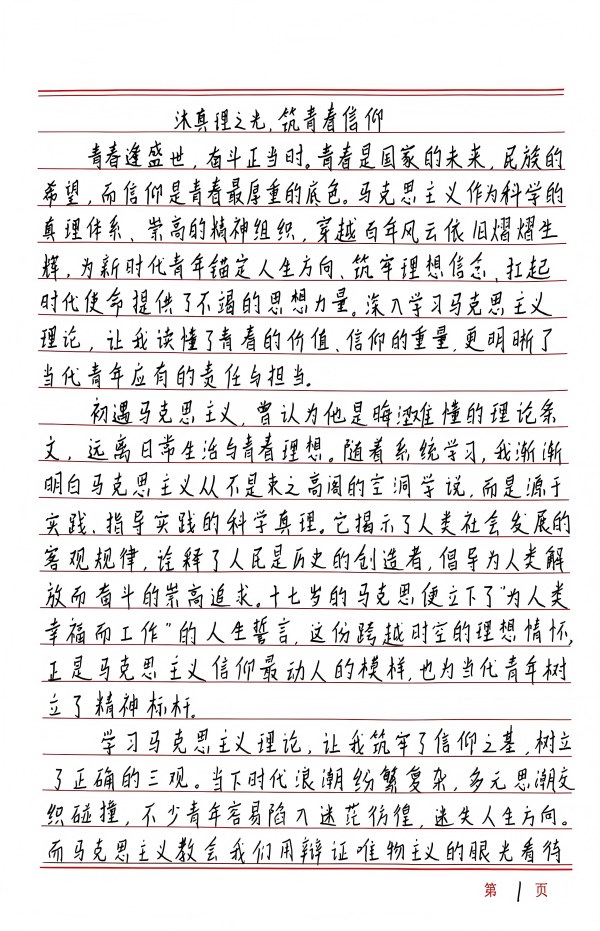 沐真理之光，筑青春信仰
青春逢盛世，奋斗正当时。青春是国家的未来，民族的
希望，而信仰是青春最厚重的底色。马克思主义作为科学的
真理体系、崇高的精神组织，穿越百年风云依旧熠熠生
辉，为新时代青年锚定人生方向、筑牢理想信念、扛起
时代使命提供了不竭的思想力量。深入学习马克思主义
理论，让我读懂了青春的价值、信仰的重量，更明晰了
当代青年应有的责任与担当。
初遇马克思主义，曾认为他是晦涩难懂的理论条
文，远离日常生活与青春理想。随着系统学习，我渐渐
明白马克思主义从不是束之高阁的空洞学说，而是源于
实践、指导实践的科学真理。它揭示了人类社会发展的
客观规律，诠释了人民是历史的创造者，倡导为人类解
放而奋斗的崇高追求。十七岁的马克思便立下了“为人类
幸福而工作”的人生誓言，这份跨越时空的理想情怀，
正是马克思主义信仰最动人的模样，也为当代青年树
立了精神标杆。
学习马克思主义理论，让我筑牢了信仰之基，树立
了正确的三观。当下时代浪潮纷繁复杂，多元思潮交
织碰撞，不少青年容易陷入迷茫彷徨，迷失人生方向。
而马克思主义教会我们用辩证唯物主义的眼光看待
第 1 页